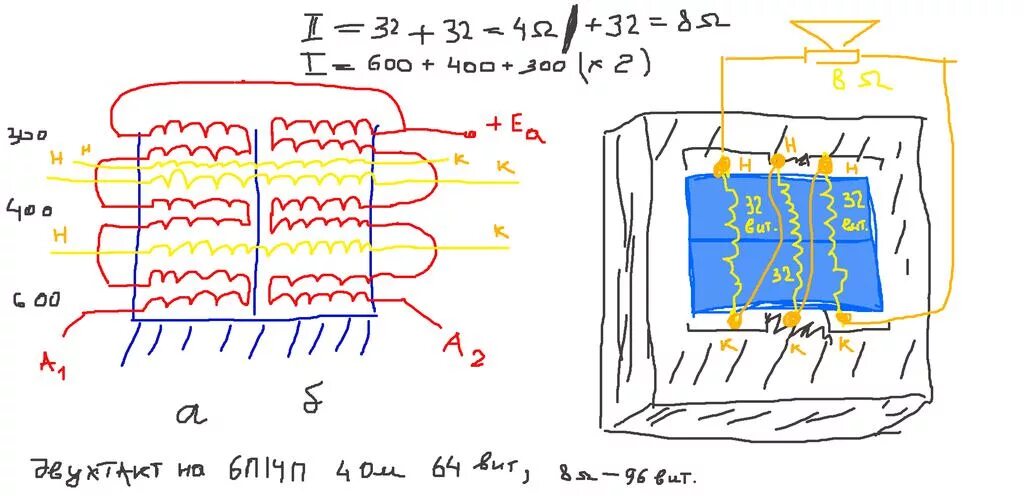 II = 32 + 32 = 4Ω / + 32 = 8Ω
I = 600 + 400 + 300 (x 2)
8 Ω
300
+ Eа
Н Н К К
400
Н К
600
А1 А2
Н Н Н
32 вит.
32
32 вит.
К К К
а б
двухтакт на 6П14П 4 Ом 64 вит, 8Ω – 96 вит.